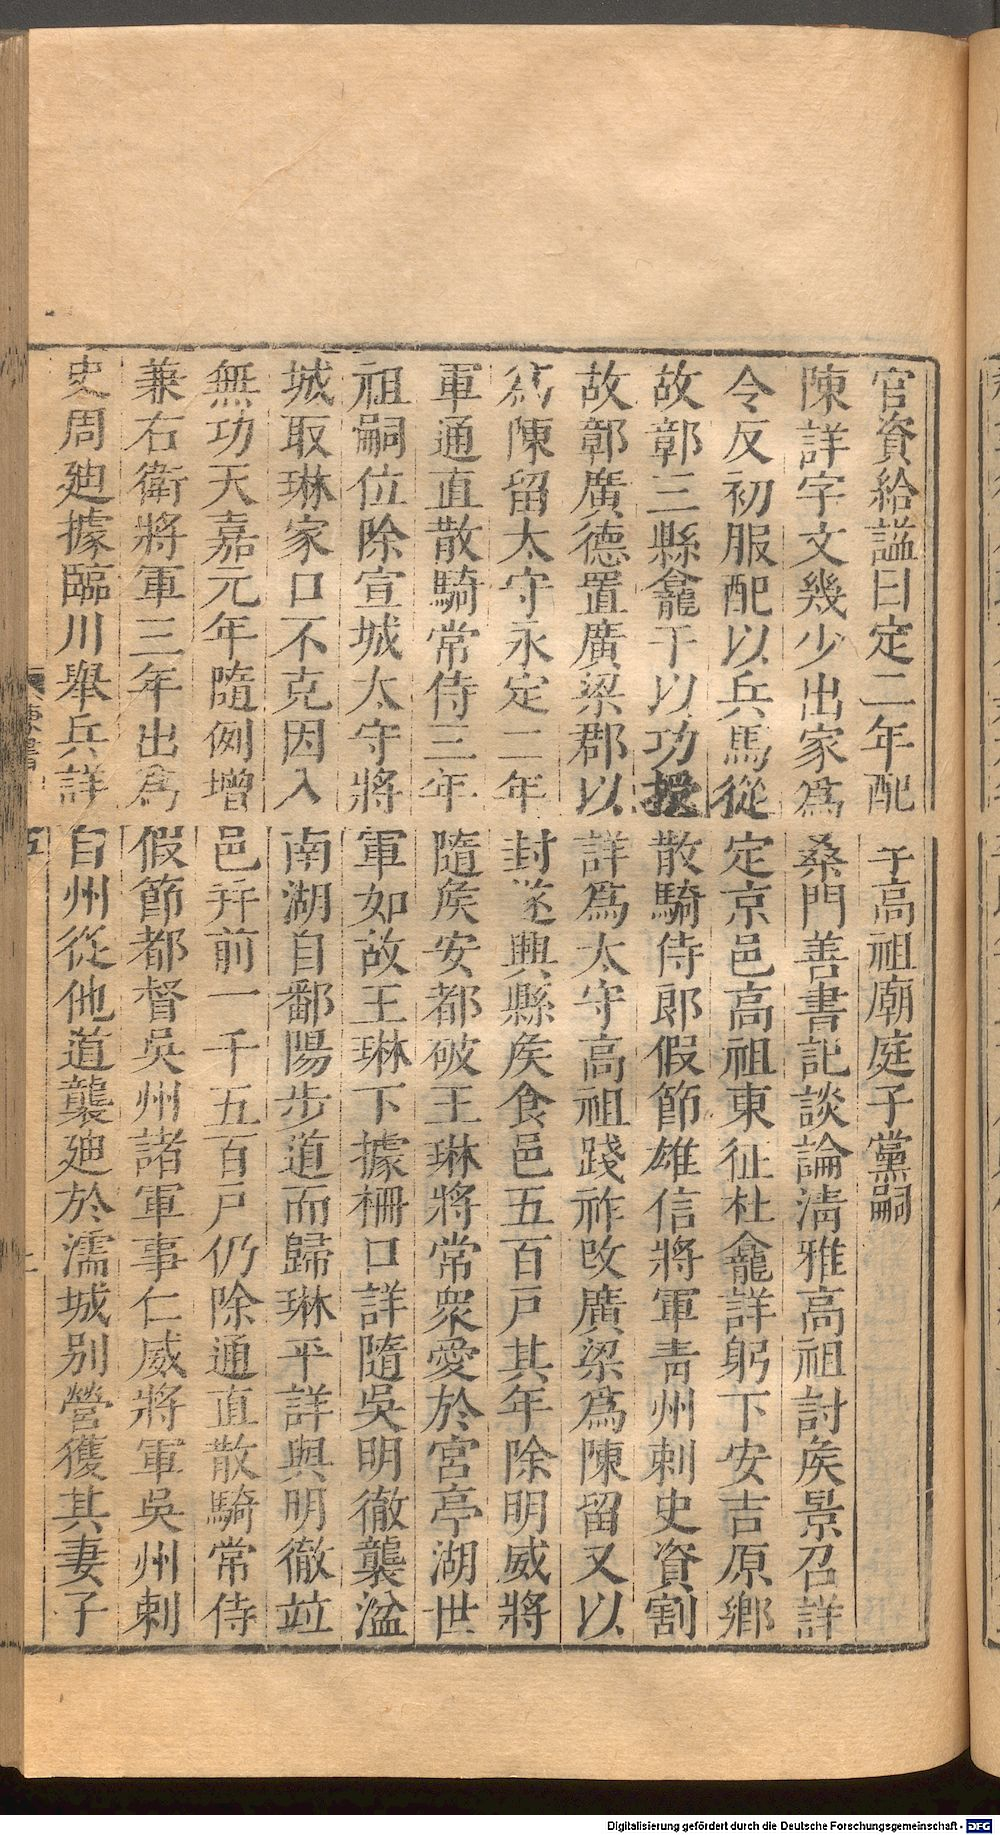 官資給諡曰定二年配于高祖廟庭子黨嗣
陳詳字文幾少出家爲桑門善書記談論淸雅高祖討矦景召詳
令反初服配以兵馬從定京邑高祖東征杜龕詳躬下安吉原鄉
故鄣三縣龕于以功授散騎侍郎假節雄信將軍靑州刺史資割
故鄣廣德置廣梁郡以詳爲太守高祖踐祚改廣梁爲陳留又以
爲陳留太守永定二年封遂興縣矦食邑五百戸其年除明威將
軍通直散騎常侍三年隨矦安都破王琳將常衆愛於宮亭湖世
祖嗣位除宣城太守將軍如故王琳下據柵口詳隨吳明徹襲湓
城取琳家口不克因入南湖自鄱陽步道而歸琳平詳與明徹竝
無功天嘉元年隨例增邑幷前一千五百戸仍除通直散騎常侍
兼右衛將軍三年出爲假節都督吳州諸軍事仁威將軍吳州刺
史周廸據臨川舉兵詳自州從他道襲廸於濡城別營獲其妻子
陳書
五
Digitalisierung gefördert durch die Deutsche Forschungsgemeinschaft - DFG